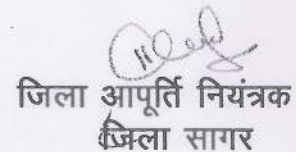 जिला आपूर्ति नियंत्रक
जिला सागर